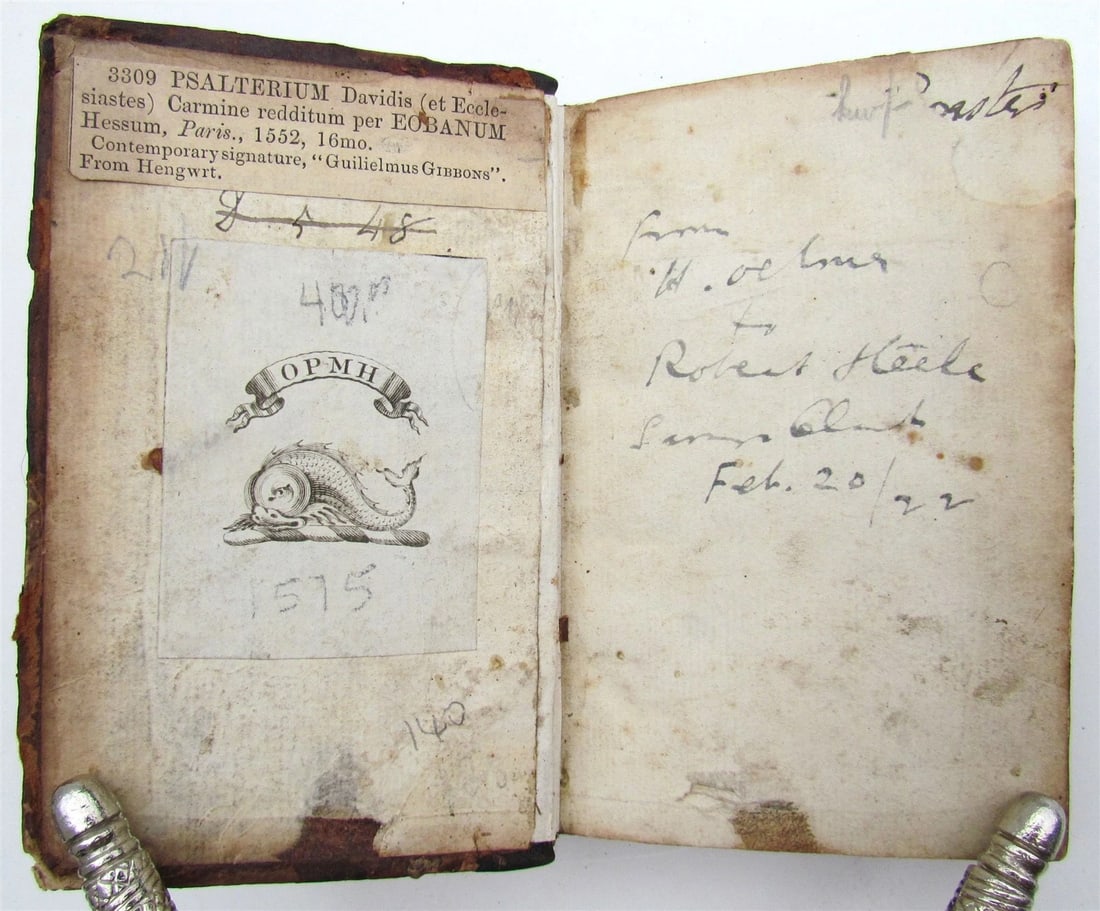 3309 PSALTERIUM Davidis (et Eccle-
siastes) Carmine redditum per EOBANUM
Hessum, Paris., 1552, 16mo.
Contemporary signature, "Guilielmus GIBBONS".
From Hengwrt.
5 48
OPMH
1575
140
from
H.
to
Robert Steele
Feb. 20/22